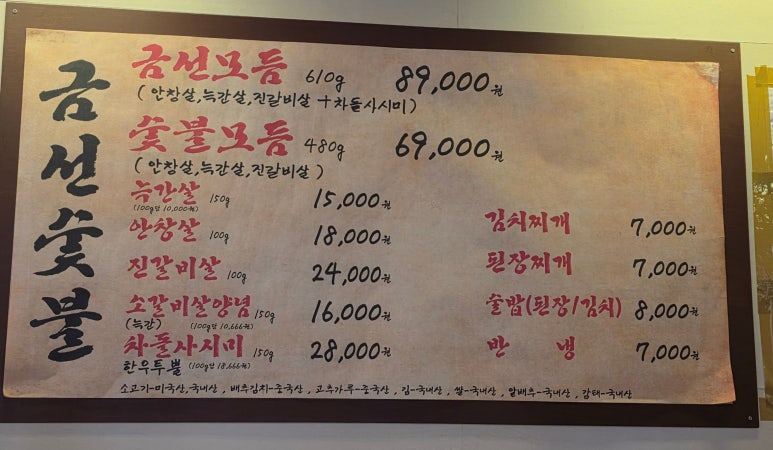 금선숯불
금선모듬 610g 89,000원
(안창살,늑간살,진갈비살+차돌사시미)
숯불모듬 480g 69,000원
(안창살,늑간살,진갈비살)
늑간살 150g 15,000원
(100g당 10,000원)
안창살 100g 18,000원
진갈비살 100g 24,000원
소갈비살양념 150g 16,000원
(늑간) (100g당 10,666원)
차돌사시미 150g 28,000원
한우투뿔 (100g당 18,666원)
김치찌개 7,000원
된장찌개 7,000원
술밥(된장/김치) 8,000원
반 냉 7,000원
소고기-미국산,국내산 , 배추김치-중국산 , 고추가루-중국산 , 김-국내산 , 쌀-국내산 , 알배추-국내산 , 감태-국내산